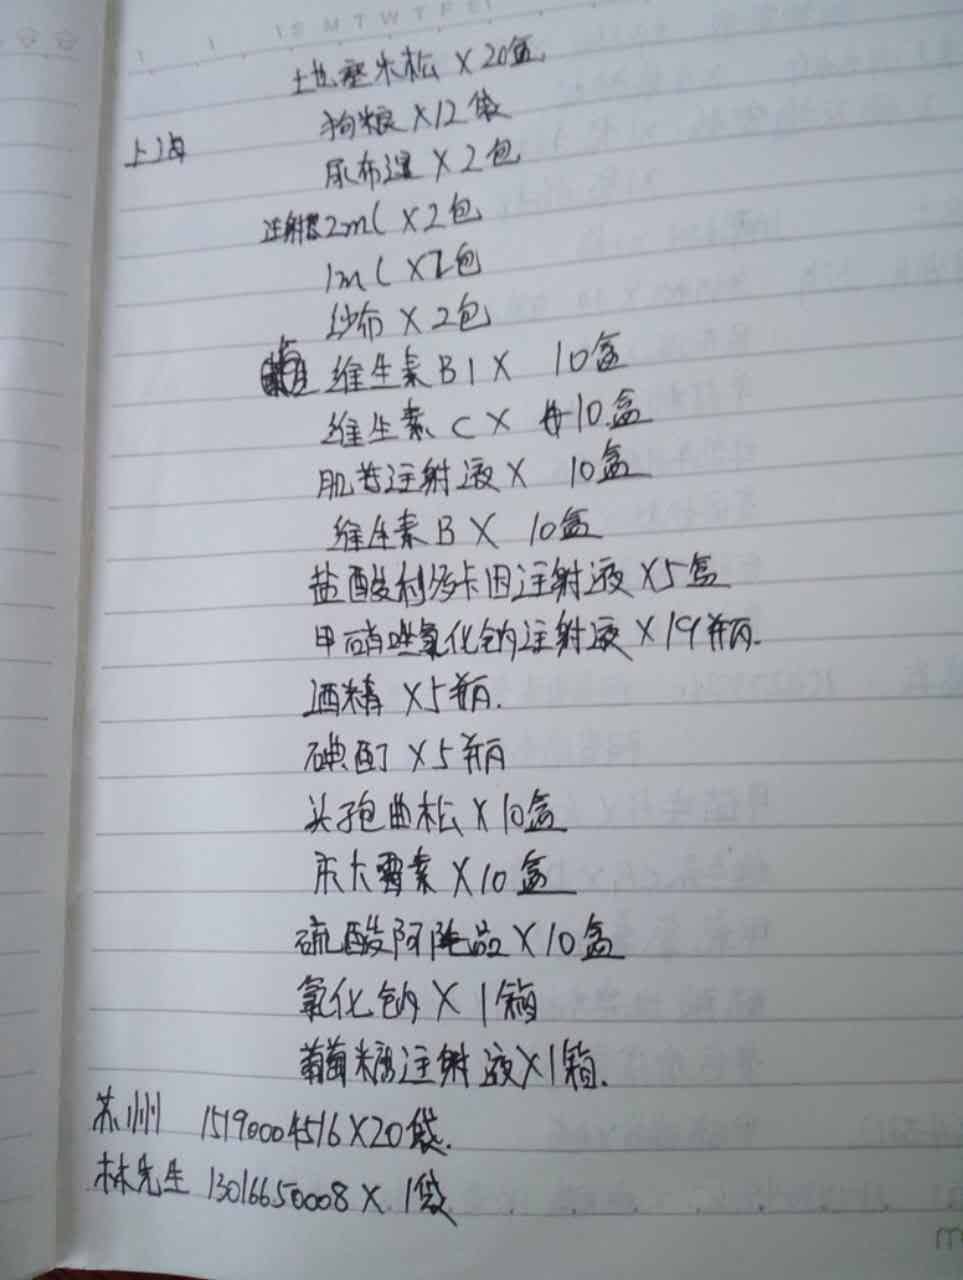 S M T W T F S
土地塞米松×20盒
狗粮×12袋
上海
尿布湿×2包
注射器2ml×2包
1ml×2包
纱布×2包
维生素B1× 10盒
维生素C× 10盒
肌苷注射液× 10盒
维生素B× 10盒
盐酸利多卡因注射液×5盒
甲硝唑氯化钠注射液×19瓶.
酒精×5瓶.
碘酊×5瓶
头孢曲松×10盒
庆大霉素×10盒
硫酸阿托品×10盒
氯化钠×1箱
葡萄糖注射液×1箱.
苏州 15190004516×20袋.
林先生 13016650008×1袋